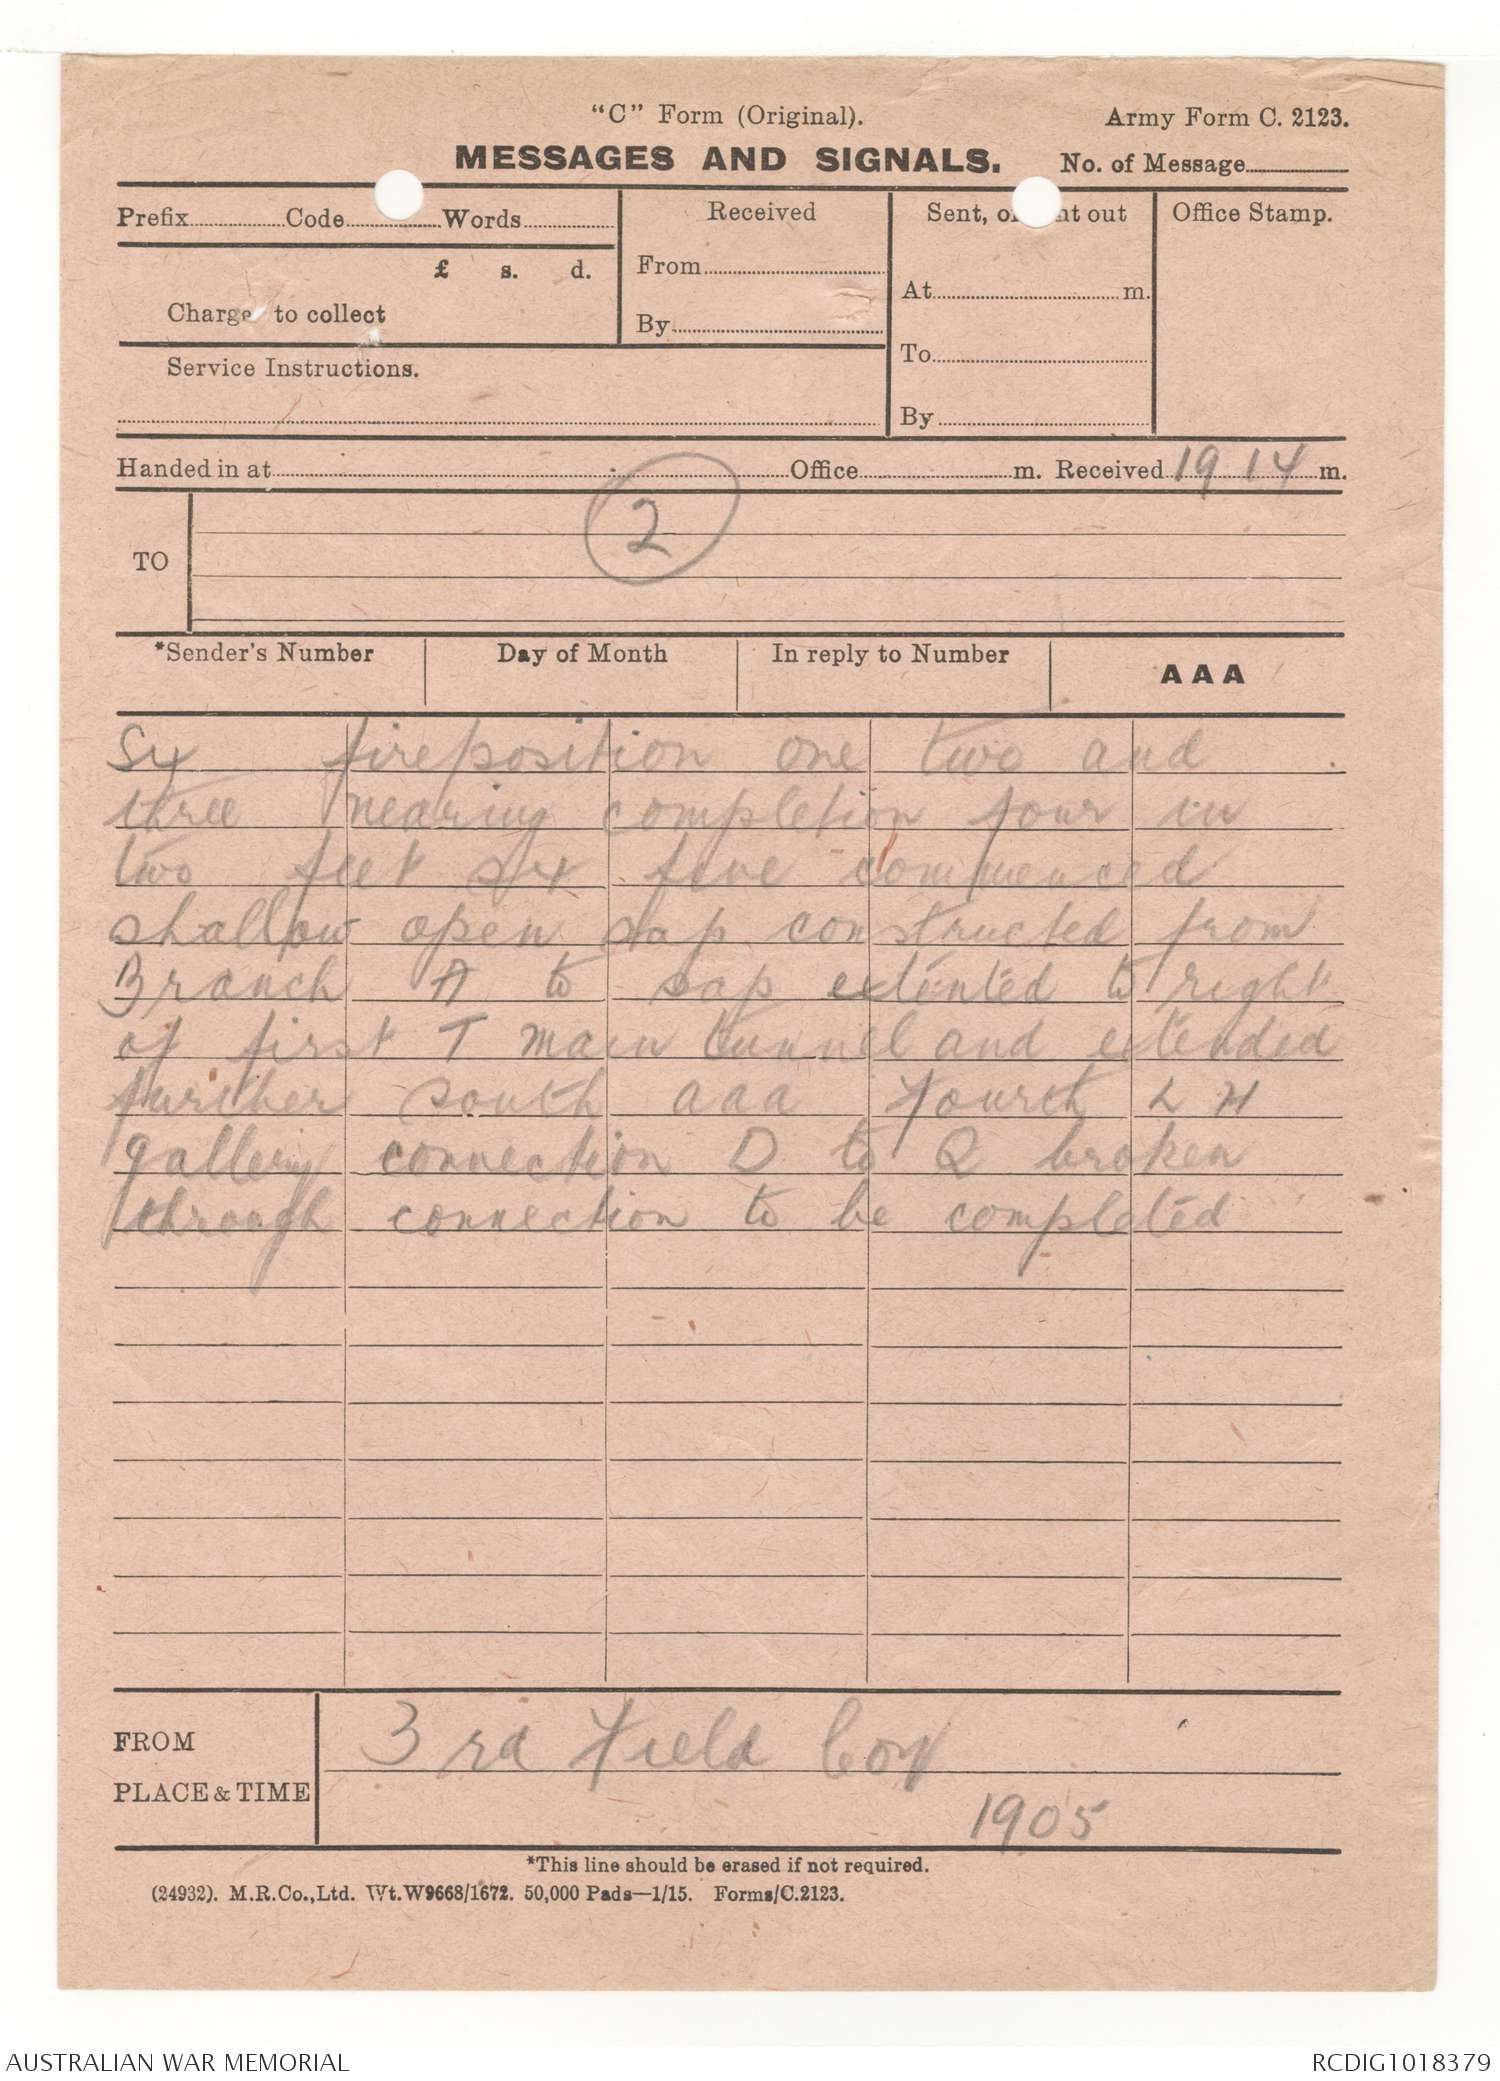 "C" Form (Original). Army Form C. 2123.
MESSAGES AND SIGNALS. No. of Message
Prefix Code Words Received Sent, or sent out Office Stamp.
£ s. d. From
Charge to collect By At m.
Service Instructions. To
By
Handed in at Office m. Received 19 14 m.
TO 2
*Sender's Number Day of Month In reply to Number AAA
Sx fireposition one two and
three nearing completion four in
two feet Sx five commenced
shallow open sap constructed from
Branch A to sap extented to right
of first T main tunnel and extended
further south aaa Fourth L H
gallery connection D to Q broken
through connection to be completed
FROM 3rd Field Coy
PLACE & TIME 1905
*This line should be erased if not required.
(24932). M.R.Co.,Ltd. Wt.W9668/1672. 50,000 Pads—1/15. Forms/C.2123.
AUSTRALIAN WAR MEMORIAL RCDIG1018379